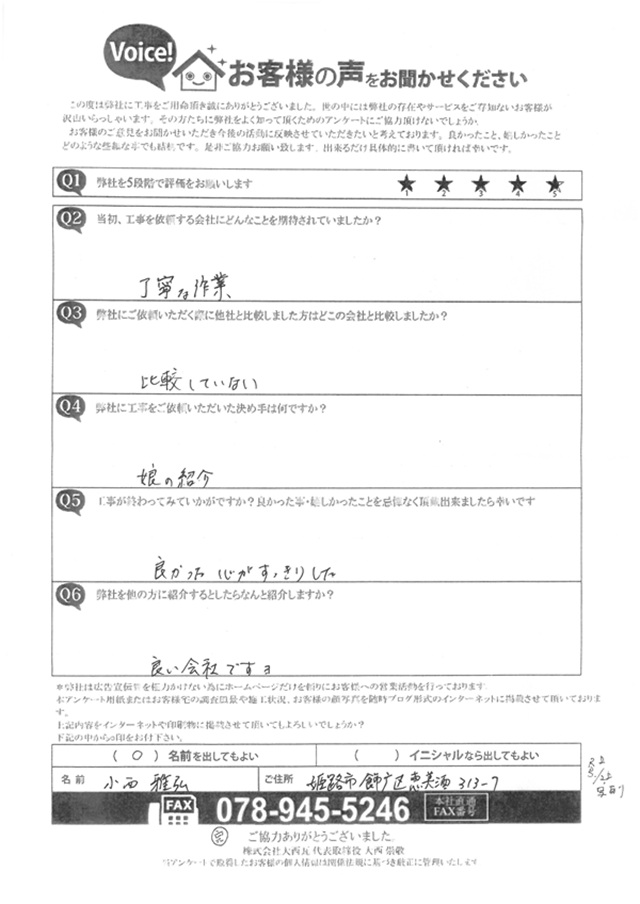 Voice!
お客様の声をお聞かせください
この度は弊社に工事をご用命頂き誠にありがとうございました。世の中には弊社の存在やサービスをご存知ないお客様が
沢山いらっしゃいます。その方たちに弊社をよく知って頂くためのアンケートにご協力頂けないでしょうか。
お客様のご意見をお聞かせいただき今後の活動に反映させていただきたいと考えております。良かったこと、嬉しかったこと
どのような些細な事でも結構です。是非ご協力お願い致します。出来るだけ具体的に書いて頂ければ幸いです。
Q1 弊社を5段階で評価をお願いします ★ ★ ★ ★ ★
1 2 3 4 5
Q2 当初、工事を依頼する会社にどんなことを期待されていましたか?
丁寧な作業、
Q3 弊社にご依頼いただく際に他社と比較しました方はどこの会社と比較しましたか?
比較していない
Q4 弊社に工事をご依頼いただいた決め手は何ですか?
娘の紹介
Q5 工事が終わってみていかがですか?良かった事・嬉しかったことを忌憚なく頂戴出来ましたら幸いです
良かった 心がすっきりした
Q6 弊社を他の方に紹介するとしたらなんと紹介しますか?
良い会社ですヨ
*弊社は広告宣伝費を極力かけない為にホームページだけを頼りにお客様への営業活動を行っております
本アンケート用紙またはお客様宅の調査風景や施工状況、お客様の顔写真を随時ブログ形式のインターネットに掲載させて頂いております。
上記内容をインターネットや印刷物に掲載させて頂いてもよろしいでしょうか?
下記の中から○印をお付け下さい。
( ○ ) 名前を出してもよい ( ) イニシャルなら出してもよい
名前 小西 雅弘 ご住所 姫路市飾磨区恵美酒 313-7
FAX 078-945-5246 本社直通 FAX番号
ご協力ありがとうございました。
株式会社大西瓦 代表取締役 大西 崇敬
当アンケートで取得したお客様の個人情報は関係法規に基づき厳正に管理いたします